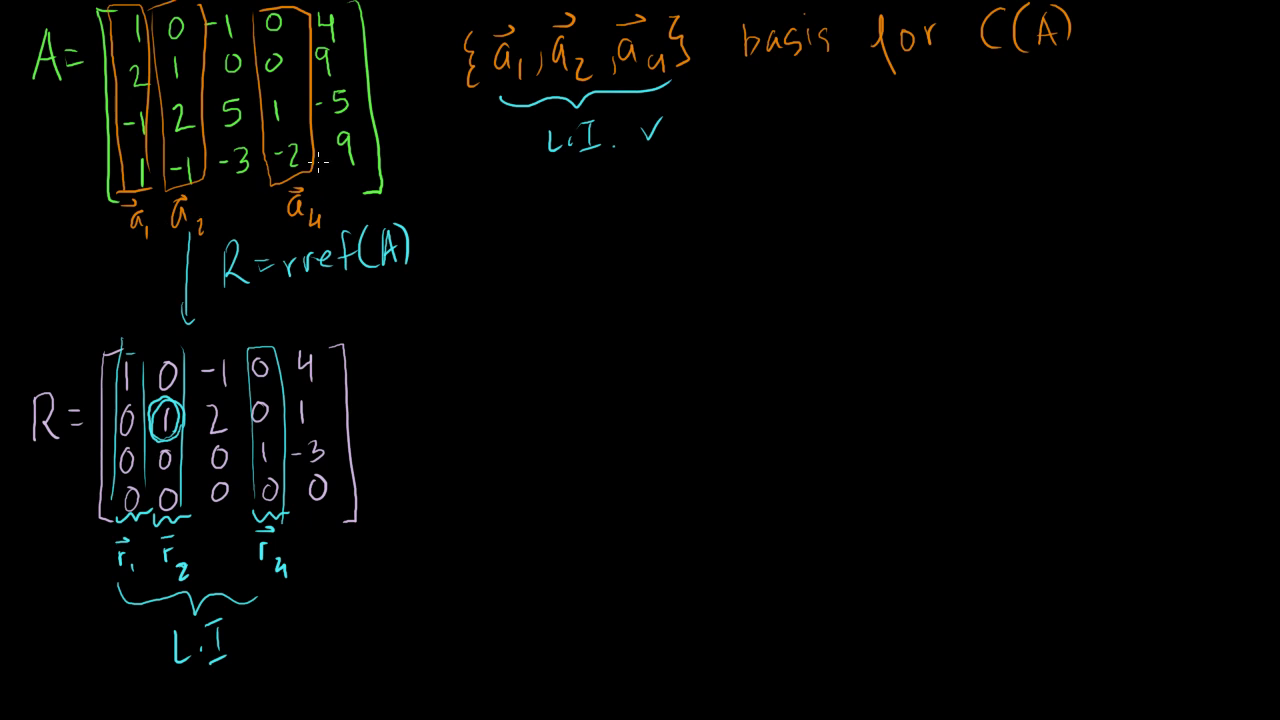 A = [ 1 0 -1 0 4
2 1 0 0 9
-1 2 5 1 -5
1 -1 -3 -2 9 ]
{a⃗₁, a⃗₂, a⃗₄} basis for C(A)
L.I. ✓
a⃗₁ a⃗₂ a⃗₄
R = rref(A)
R = [ 1 0 -1 0 4
0 1 2 0 1
0 0 0 1 -3
0 0 0 0 0 ]
r⃗₁ r⃗₂ r⃗₄
L.I